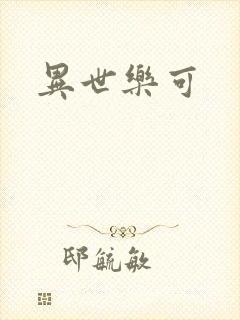 異世樂可
邸毓敏